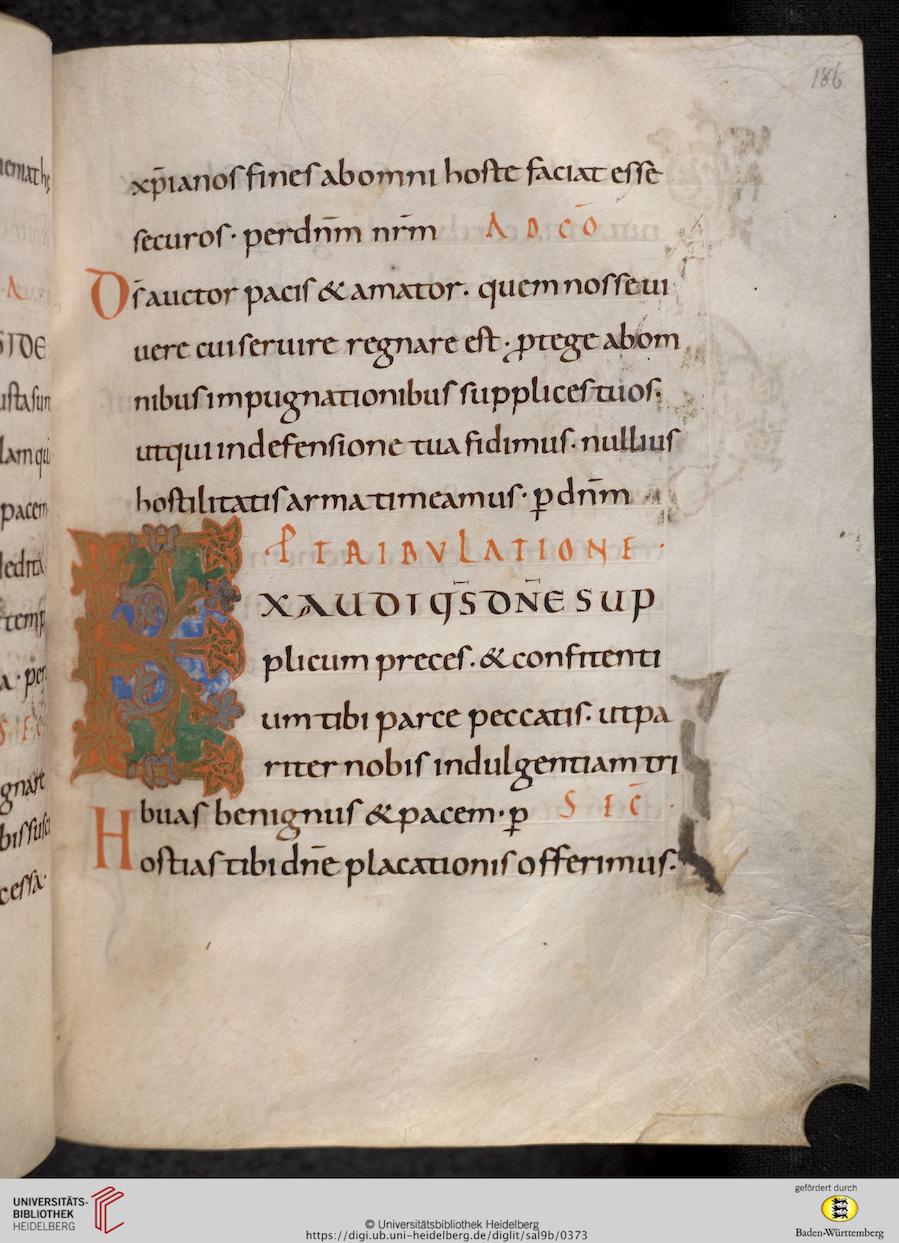 186
xp̄ianos fines ab omni hoste faciat esse
securos · per dn̄m nr̄m AD CŌ
Ds̄ auctor pacis & amator. quem nosse ui
uere cui seruire regnare est · ꝓtege ab om
nibus impugnationibus supplices tuos.
ut qui in defensione tua fidimus. nullius
hostilitatis arma timeamus · ꝑ dn̄m
P TRIBVLATIONE ·
EXAUDI QS̄ DN̄E SUP
plicum preces. & confitenti
um tibi parce peccatis. ut pa
riter nobis indulgentiam tri
buas benignus & pacem · ꝑ SEC̄ ·
Hostias tibi dn̄e placationis offerimus.
nemathe
A
SIDE
usta sun
lam qui
pacem
ledita
temp
a · per
S EC
gnare
bis susc
cessa·
UNIVERSITÄTS-
BIBLIOTHEK
HEIDELBERG
© Universitätsbibliothek Heidelberg
https://digi.ub.uni-heidelberg.de/diglit/sal9b/0373
gefördert durch
Baden-Württemberg